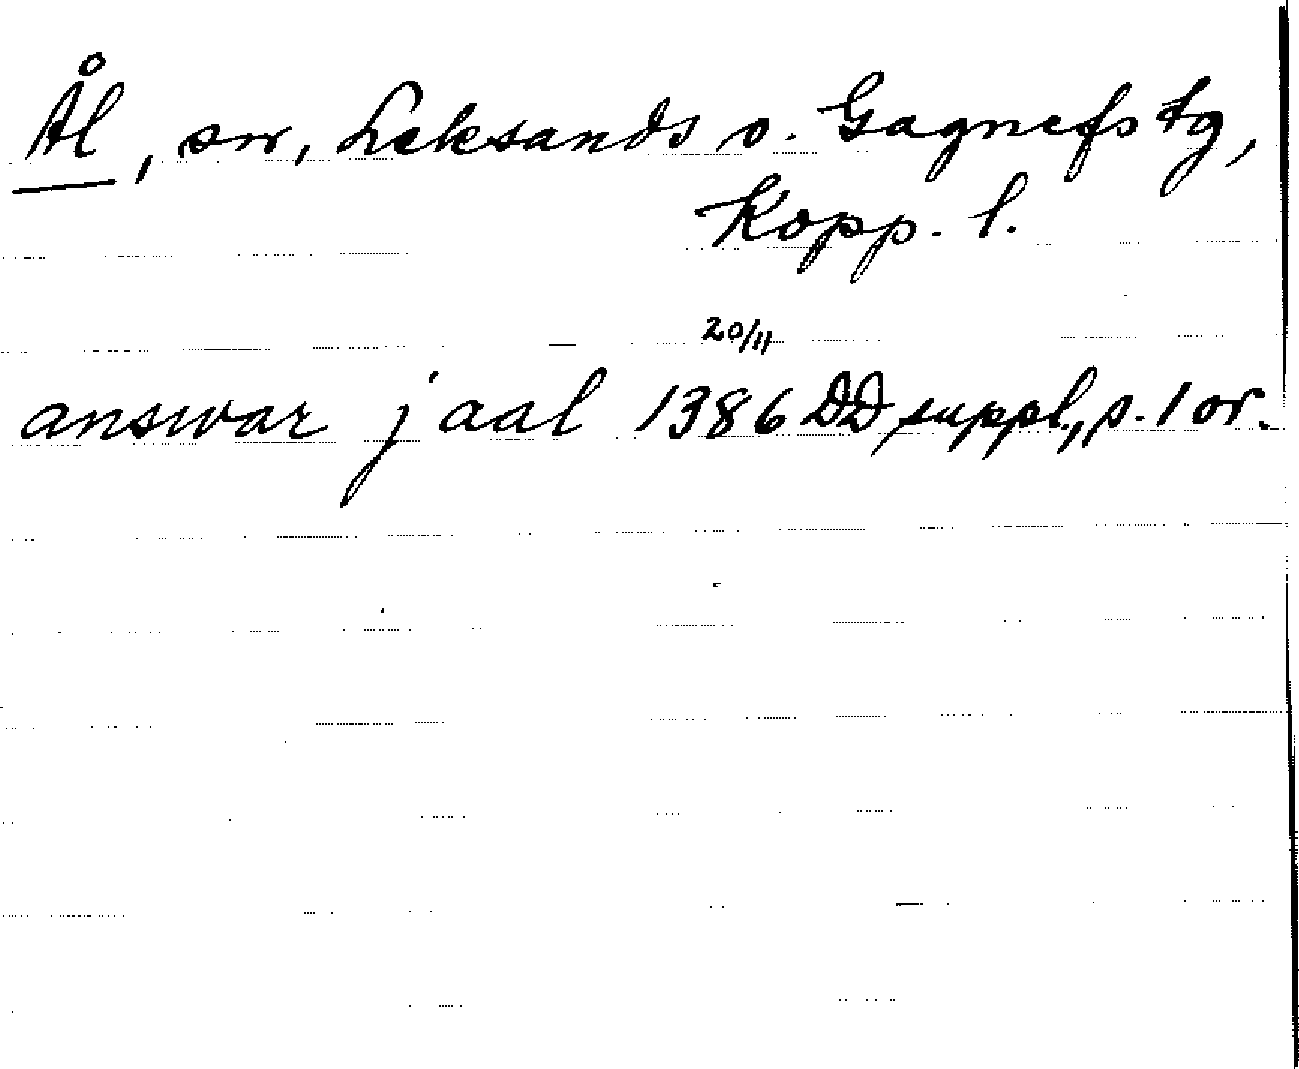 Ål, sn, Leksands o. Gagnefs tg,
Kopp. l.
20/11
answar j aal 1386 DD suppl., s. 1 or.